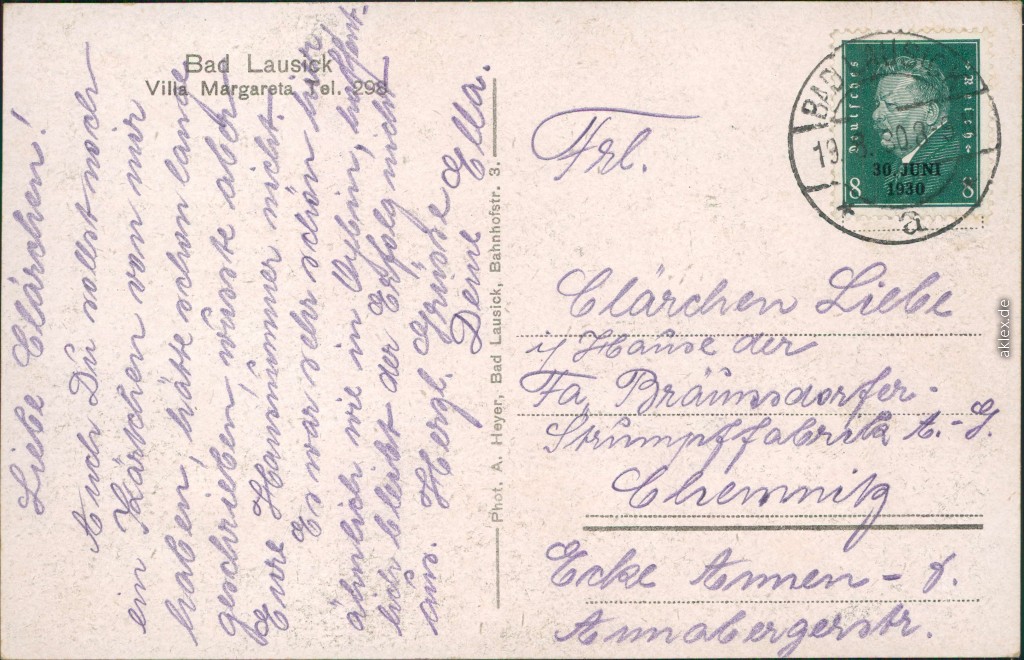 Bad Lausick
Villa Margareta Tel. 298
Liebe Clärchen!
Auch Du sollst noch
ein Kärtchen von mir
haben, hätte schon lange
geschrieben, wusste aber
Eure Hausnummer nicht.
Es war sehr schön hier,
ähnlich wie in Oybin, hoffent-
lich bleibt der Erfolg nicht
aus. Herzl. Grüsse
Deine Ella.
Phot. A. Heyer, Bad Lausick, Bahnhofstr. 3.
Deutsches Reich
30. JUNI
1930
8 8
BAD LAUSICK
19. 30.
a
Frl.
Clärchen Liebe
i/ Hause der
Fa. Bräunsdorfer
Strumpffabrik A.-G.
Chemnitz
Ecke Annen- &
Annabergerstr.
aklex.de